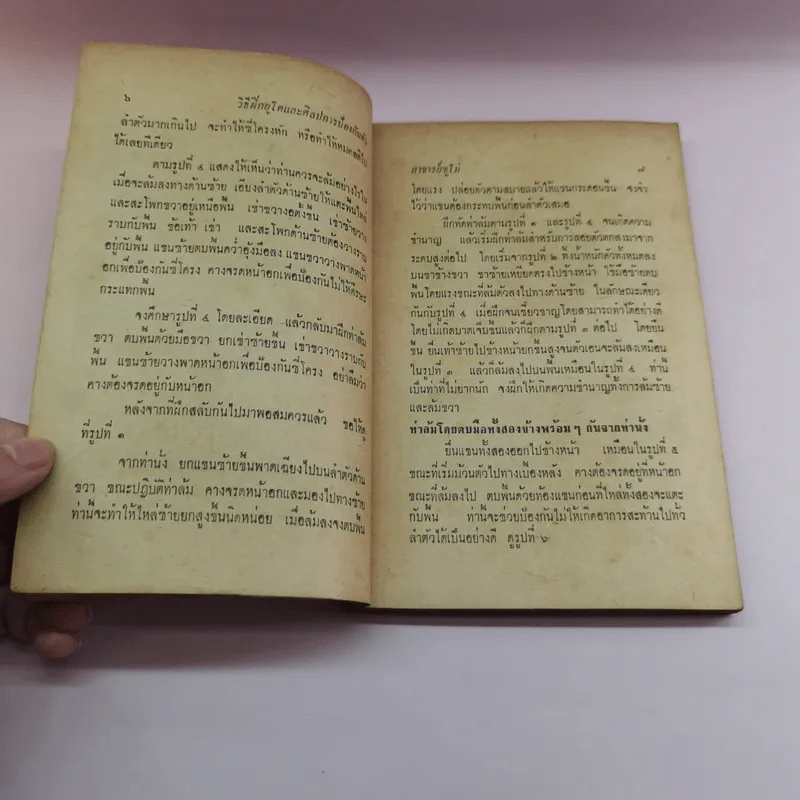 ๖ วิธีฝึกยูโดและศิลปการป้องกันตัว
ลำตัวมากเกินไป จะทำให้ซี่โครงหัก หรือทำให้หมดสติไป
ได้เลยทีเดียว
ตามรูปที่ ๔ แสดงให้เห็นว่าท่านควรจะล้มอย่างไรใน
เมื่อจะล้มลงทางด้านซ้าย เอียงลำตัวด้านซ้ายให้แตะพื้นไหล่
และสะโพกขวาอยู่เหนือพื้น เข่าขวางอตั้งขึ้น เข่าซ้ายวาง
ราบกับพื้น ข้อเท้า เข่า และสะโพกด้านซ้ายต้องวางราบ
อยู่กับพื้น แขนซ้ายตบพื้นคว่ำอุ้งมือลง แขนขวาวางพาดหน้า
อกเพื่อป้องกันซี่โครง คางจรดหน้าอกเพื่อป้องกันไม่ให้ศีรษะ
กระแทกพื้น
จงศึกษารูปที่ ๔ โดยละเอียด แล้วกลับมาฝึกท่าล้ม
ขวา ตบพื้นด้วยมือขวา ยกเข่าซ้ายขึ้น เข่าขวาวางราบกับ
พื้น แขนซ้ายวางพาดหน้าอกเพื่อป้องกันซี่โครง อย่าลืมว่า
คางต้องจรดอยู่กับหน้าอก
หลังจากที่ฝึกสลับกันไปมาพอสมควรแล้ว ขอให้ดู
ที่รูปที่ ๑
จากท่านั่ง ยกแขนซ้ายขึ้นพาดเฉียงไปบนลำตัวด้าน
ขวา ขณะปฏิบัติท่าล้ม คางจรดหน้าอกและมองไปทางซ้าย
ท่านี้จะทำให้ไหล่ซ้ายยกสูงขึ้นนิดหน่อย เมื่อล้มลงจงตบพื้น
อาจารย์ชูโม่ ๗
โดยแรง ปล่อยตัวตามสบายแล้วให้แขนกระดอนขึ้น จงจำ
ไว้ว่าแขนต้องกระทบพื้นก่อนลำตัวเสมอ
ฝึกหัดท่าล้มตามรูปที่ ๑ และรูปที่ ๔ จนเกิดความ
ชำนาญ แล้วเริ่มฝึกท่าล้มสำหรับการลอยตัวตกลงมาจาก
ระดับสูงต่อไป โดยเริ่มจากรูปที่ ๒ ทิ้งน้ำหนักตัวทั้งหมดลง
บนขาข้างขวา ขาซ้ายเหยียดตรงไปข้างหน้า ใช้มือซ้ายตบ
พื้นโดยแรงขณะที่ล้มตัวลงไปทางด้านซ้าย ในลักษณะเดียว
กันกับรูปที่ ๔ เมื่อฝึกจนเชี่ยวชาญโดยสามารถทำได้อย่างดี
โดยไม่เกิดบาดเจ็บขึ้นแล้วก็ฝึกตามรูปที่ ๓ ต่อไป โดยยืน
ขึ้น ยื่นเท้าซ้ายไปข้างหน้ายกขึ้นสูงจนตัวเอนจะล้มลงเหมือน
ในรูปที่ ๓ แล้วก็ล้มลงไปบนพื้นเหมือนในรูปที่ ๔ ท่านี้
เป็นท่าที่ไม่ยากนัก จงฝึกให้เกิดความชำนาญทั้งการล้มซ้าย
และล้มขวา
ท่าล้มโดยตบมือทั้งสองข้างพร้อมๆ กันจากท่านั่ง
ยื่นแขนทั้งสองออกไปข้างหน้า เหมือนในรูปที่ ๕
ขณะที่เริ่มม้วนตัวไปทางเบื้องหลัง คางต้องจรดอยู่ที่หน้าอก
ขณะที่ล้มลงไป ตบพื้นด้วยท้องแขนก่อนที่ไหล่ทั้งสองจะแตะ
กับพื้น ท่านี้จะช่วยป้องกันไม่ให้เกิดอาการสะท้านไปทั่ว
ลำตัวได้เป็นอย่างดี ดูรูปที่ ๖